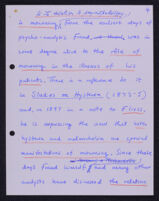 is mourning. From the earliest days of
psycho-analysis Freud was to
some degree alive to the role of
mourning in the illness of his
patients. There is a reference to it
in Studies on Hysteria (1893-5)
and in 1897 in a note to Fliess,
he is expressing the view that both
hysteria and melancholia are
manifestations of mourning. Since those
days Freud himself and many other
analysts have discussed the relation